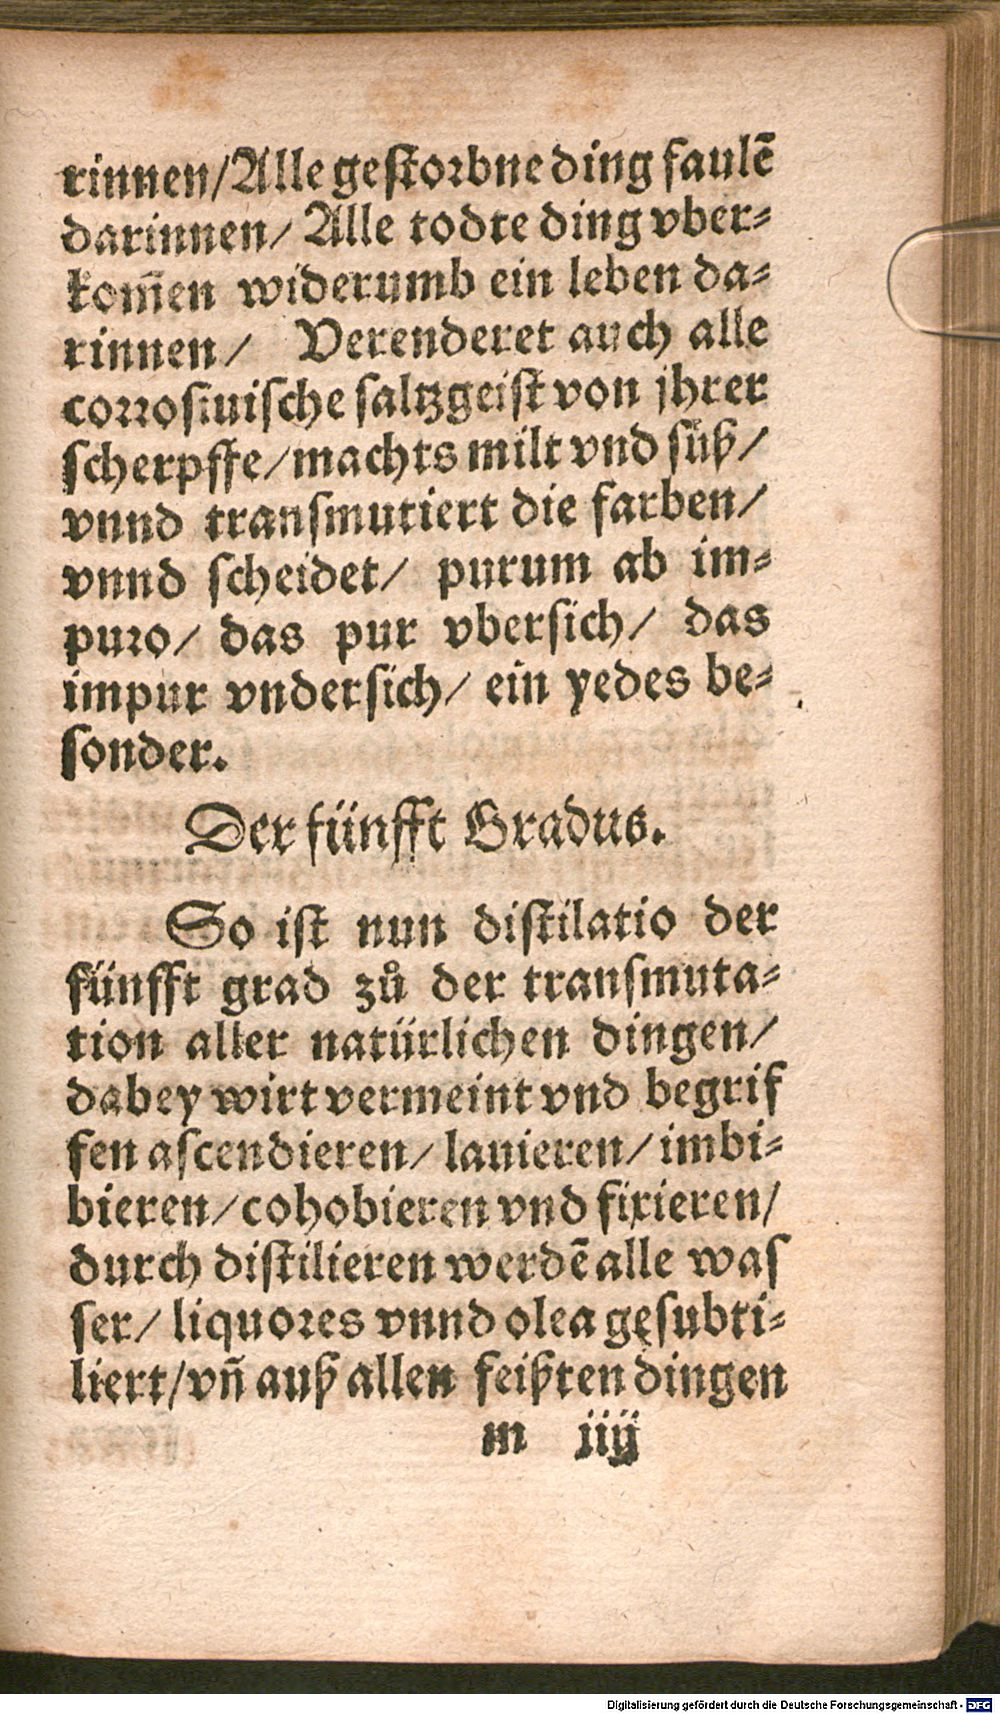 rinnen/Alle gestorbne ding faulē
darinnen/ Alle todte ding vber⸗
kom̄en widerumb ein leben da⸗
rinnen/ Verenderet auch alle
corrosiuische saltzgeist von jhrer
scherpffe/machts milt vnd süß/
vnnd transmutiert die farben/
vnnd scheidet/ purum ab im⸗
puro/ das pur vbersich/ das
impur vndersich/ ein yedes be⸗
sonder.
Der fünfft Gradus.
So ist nun distilatio der
fünfft grad zů der transmuta⸗
tion aller natürlichen dingen/
dabey wirt vermeint vnd begrif
fen ascendieren/ lauieren/ imbi⸗
bieren/cohobieren vnd fixieren/
durch distilieren werdē alle was
ser/ liquores vnnd olea gesubti⸗
liert/vn̄ auß allen feißten dingen
m iiij
Digitalisierung gefördert durch die Deutsche Forschungsgemeinschaft - DFG